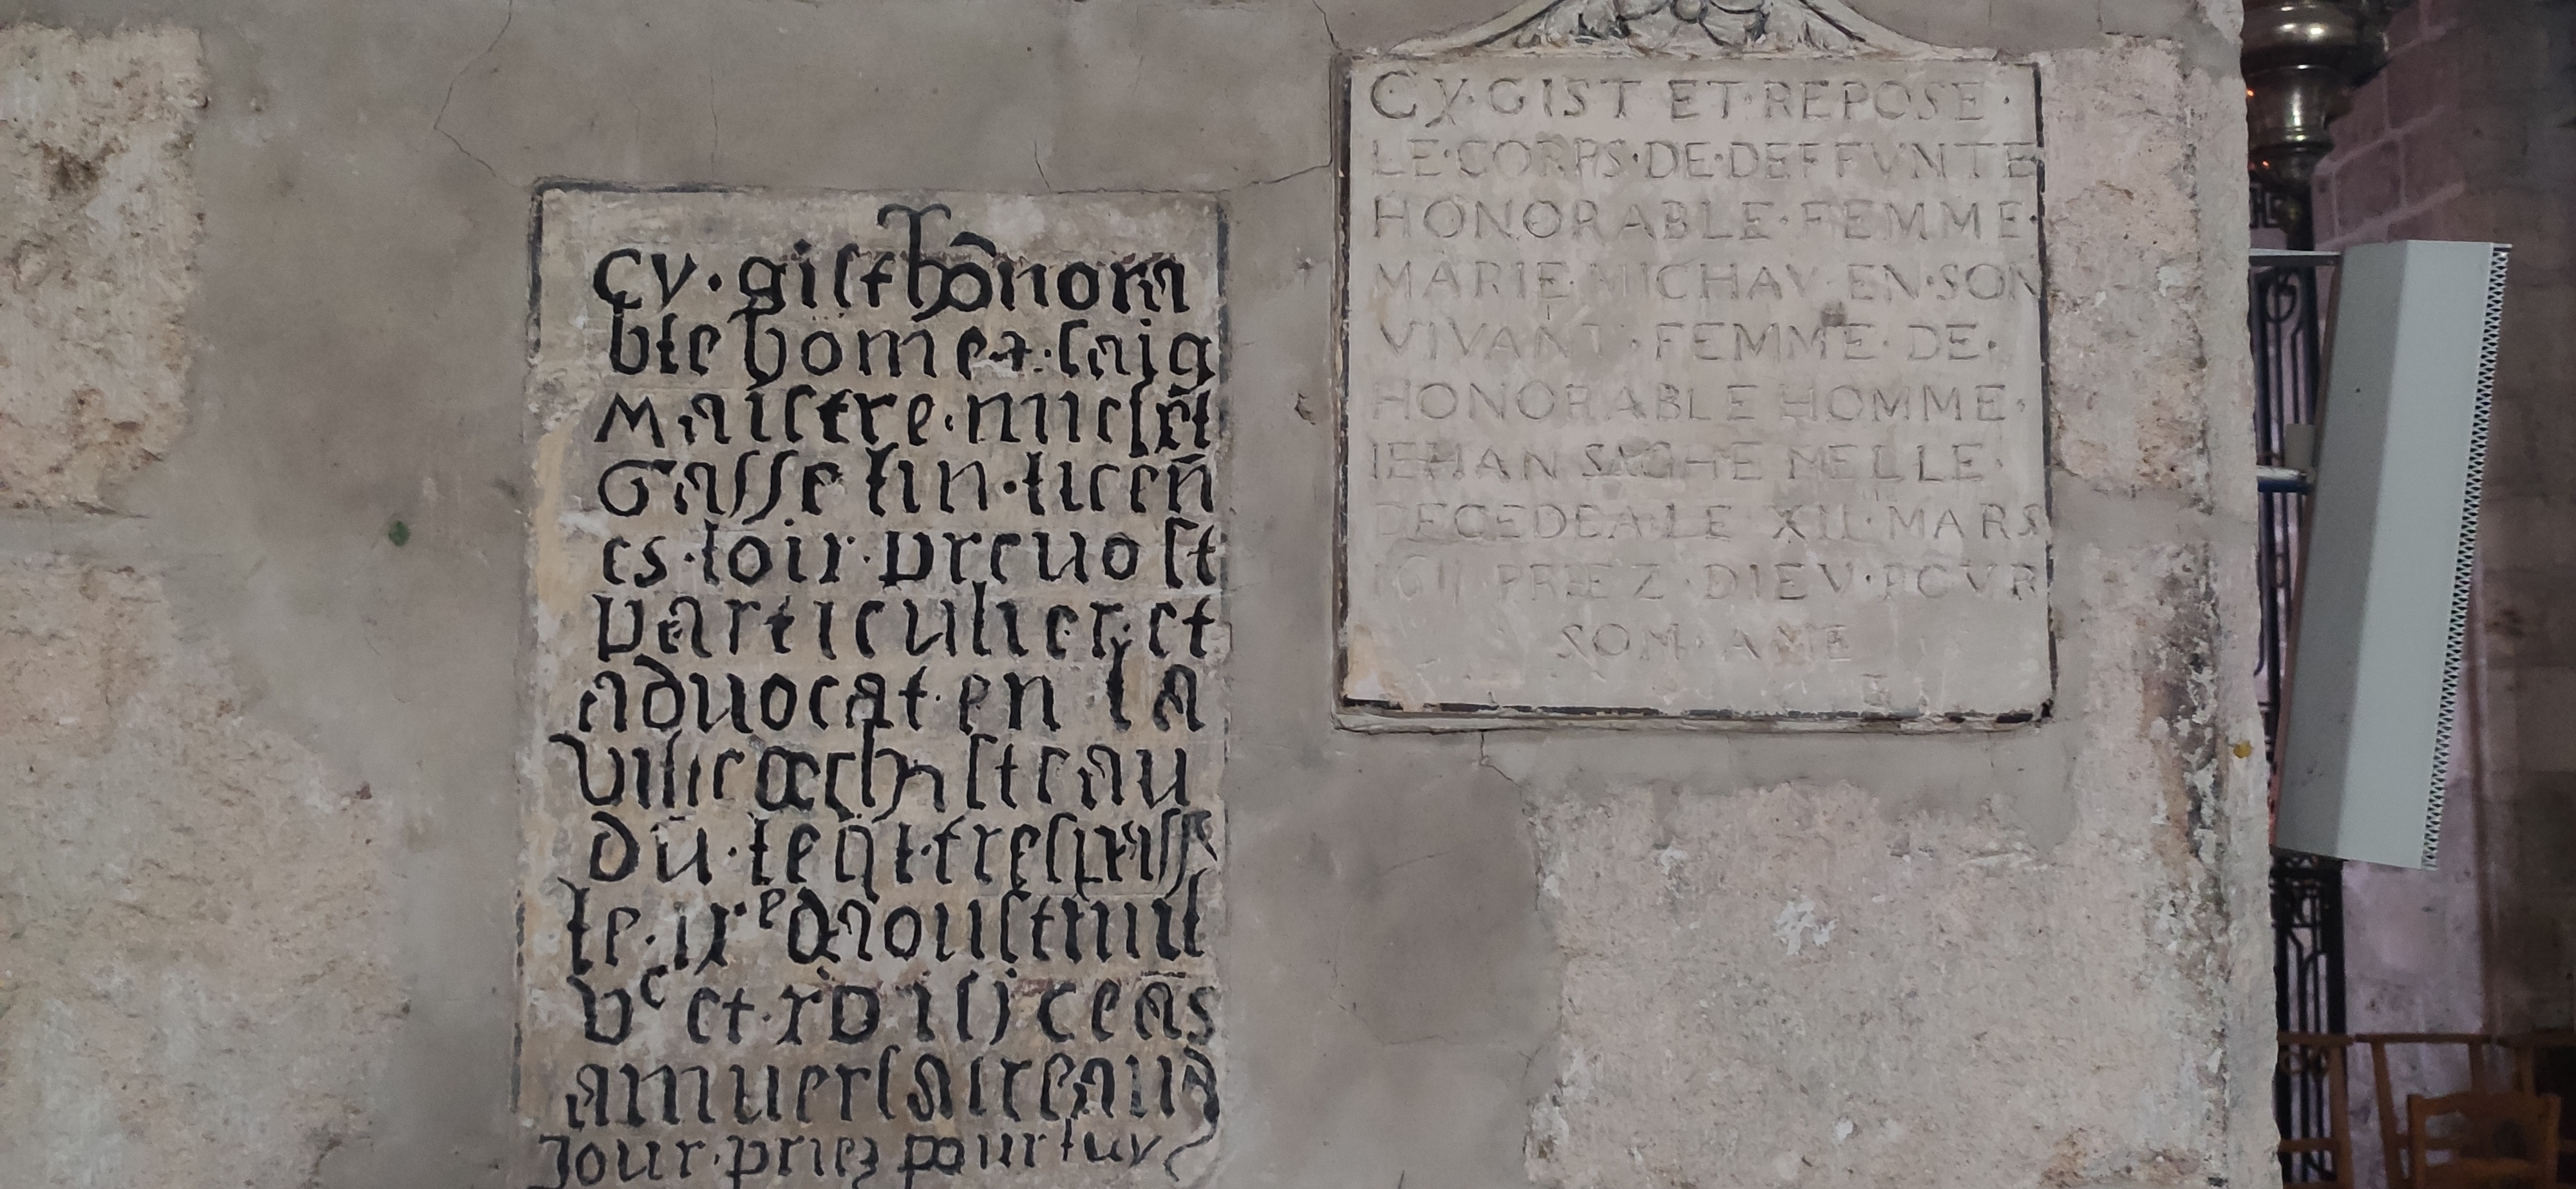 Cy · gist hõnora
ble home ⁊ · saig
Maistre · michel
Gasselin · licen̄
es · loix · prevost
particulier · et
advocat · en la
ville
du
le · ixᵉ daoust mil
vᶜ et ·
anniversaire aud
Jour · priez pour luy
CY · GIST ET · REPOSE ·
LE · CORPS · DE · DEFFVNTE
HONORABLE · FEMME ·
MARIE MICHAV EN · SON
VIVANT · FEMME · DE ·
HONORABLE HOMME ·
IEHAN MELLE ·
DECEDEA · LE XII · MARS
PRIEZ · DIEV · POVR
SOM · AME